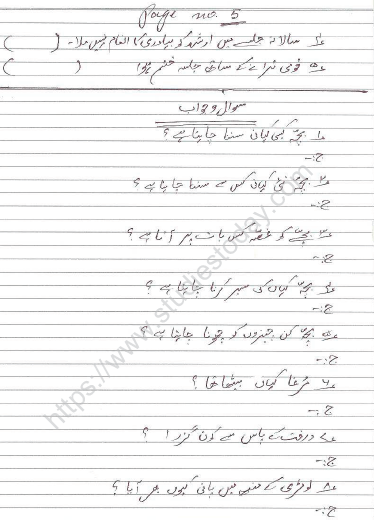 Page no. 5
۴۔ سالانہ جلسے میں ارشد کو بہادری کا انعام نہیں ملا۔ ( )
۵۔ قومی ترانے کے ساتھ جلسہ ختم ہوا ( )
سوال و جواب
۱۔ بچہ کیسی کہانی سننا چاہتا ہے؟
ج:-
۲۔ بچہ نئی کہانی کس سے سننا چاہتا ہے؟
ج:-
۳۔ بچے کو غصہ کس بات پر آتا ہے؟
ج:-
۴۔ بچہ کہاں کی سیر کرنا چاہتا ہے؟
ج:-
۵۔ بچہ کن چیزوں کو چھونا چاہتا ہے؟
ج:-
۶۔ مرغا کہاں بیٹھا تھا؟
ج:-
۷۔ درخت کے پاس سے کون گزرا؟
ج:-
۸۔ لومڑی کے منہ میں پانی کیوں بھر آیا؟
ج:-
https://www.studiestoday.com